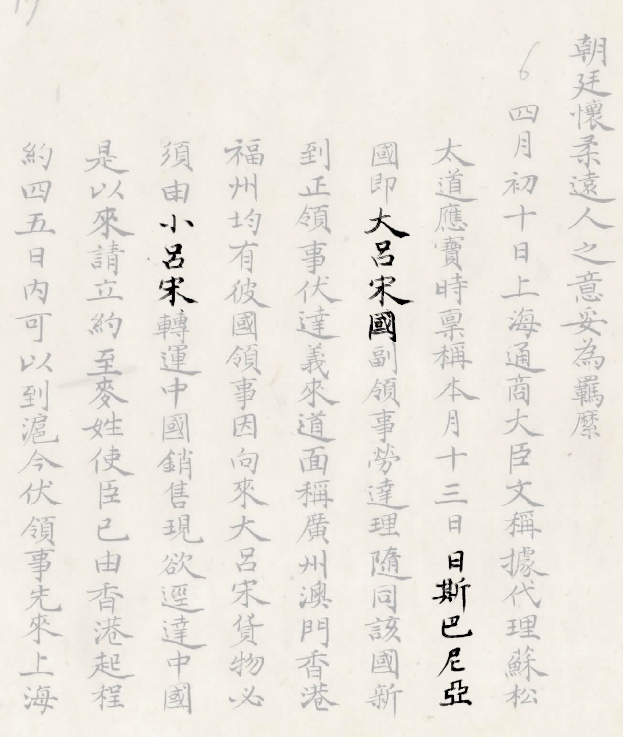 朝廷懷柔遠人之意妥為羈縻
6 四月初十日上海通商大臣文稱據代理蘇松
太道應寶時稟稱本月十三日日斯巴尼亞
國即大呂宋國副領事勞達理隨同該國新
到正領事伏達義來道面稱廣州澳門香港
福州均有彼國領事因向來大呂宋貨物必
須由小呂宋轉運中國銷售現欲逕達中國
是以來請立約至麥姓使臣已由香港起程
約四五日內可以到滬今伏領事先來上海